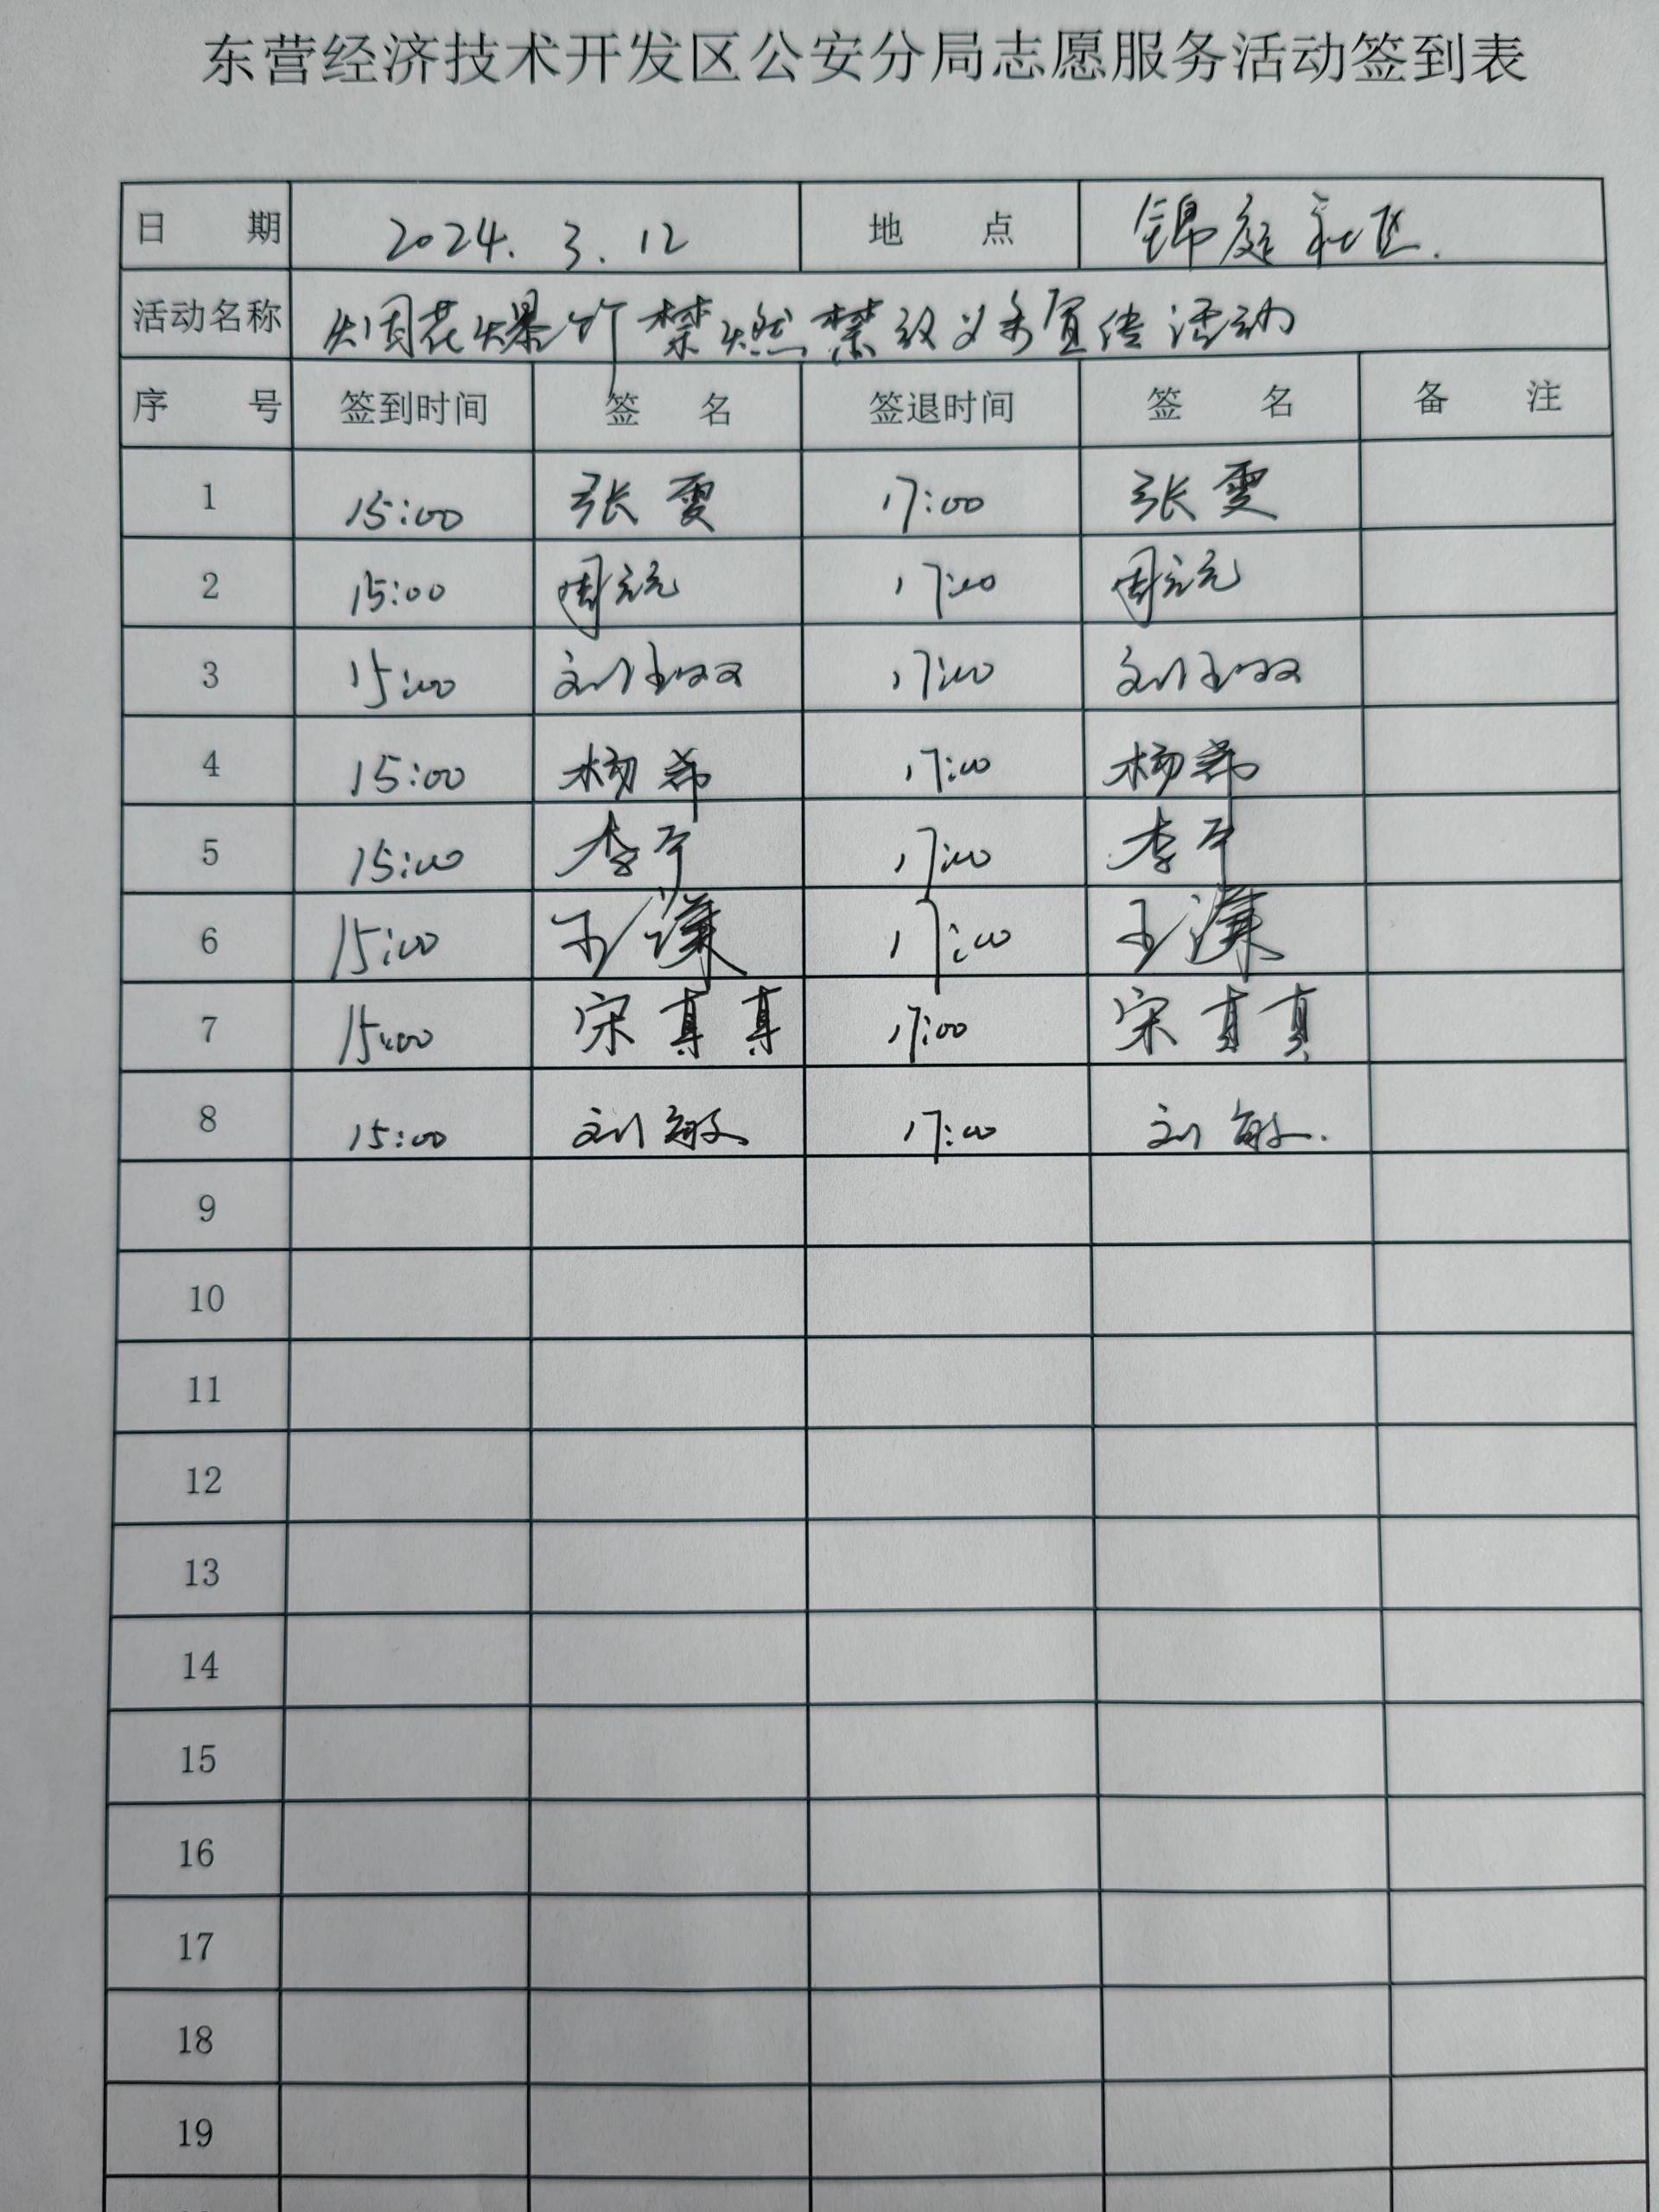 东营经济技术开发区公安分局志愿服务活动签到表
日期 2024.3.12 地点 锦庭社区.
活动名称 烟花爆竹禁燃禁放义务宣传活动
序号 签到时间 签名 签退时间 签名 备注
1 15:00 张雯 17:00 张雯
2 15:00 周 17:00 周
3 15:00 刘 17:00 刘
4 15:00 杨希 17:00 杨希
5 15:00 李宁 17:00 李宁
6 15:00 王 17:00 王
7 15:00 宋真真 17:00 宋真真
8 15:00 刘敏 17:00 刘敏.
9
10
11
12
13
14
15
16
17
18
19